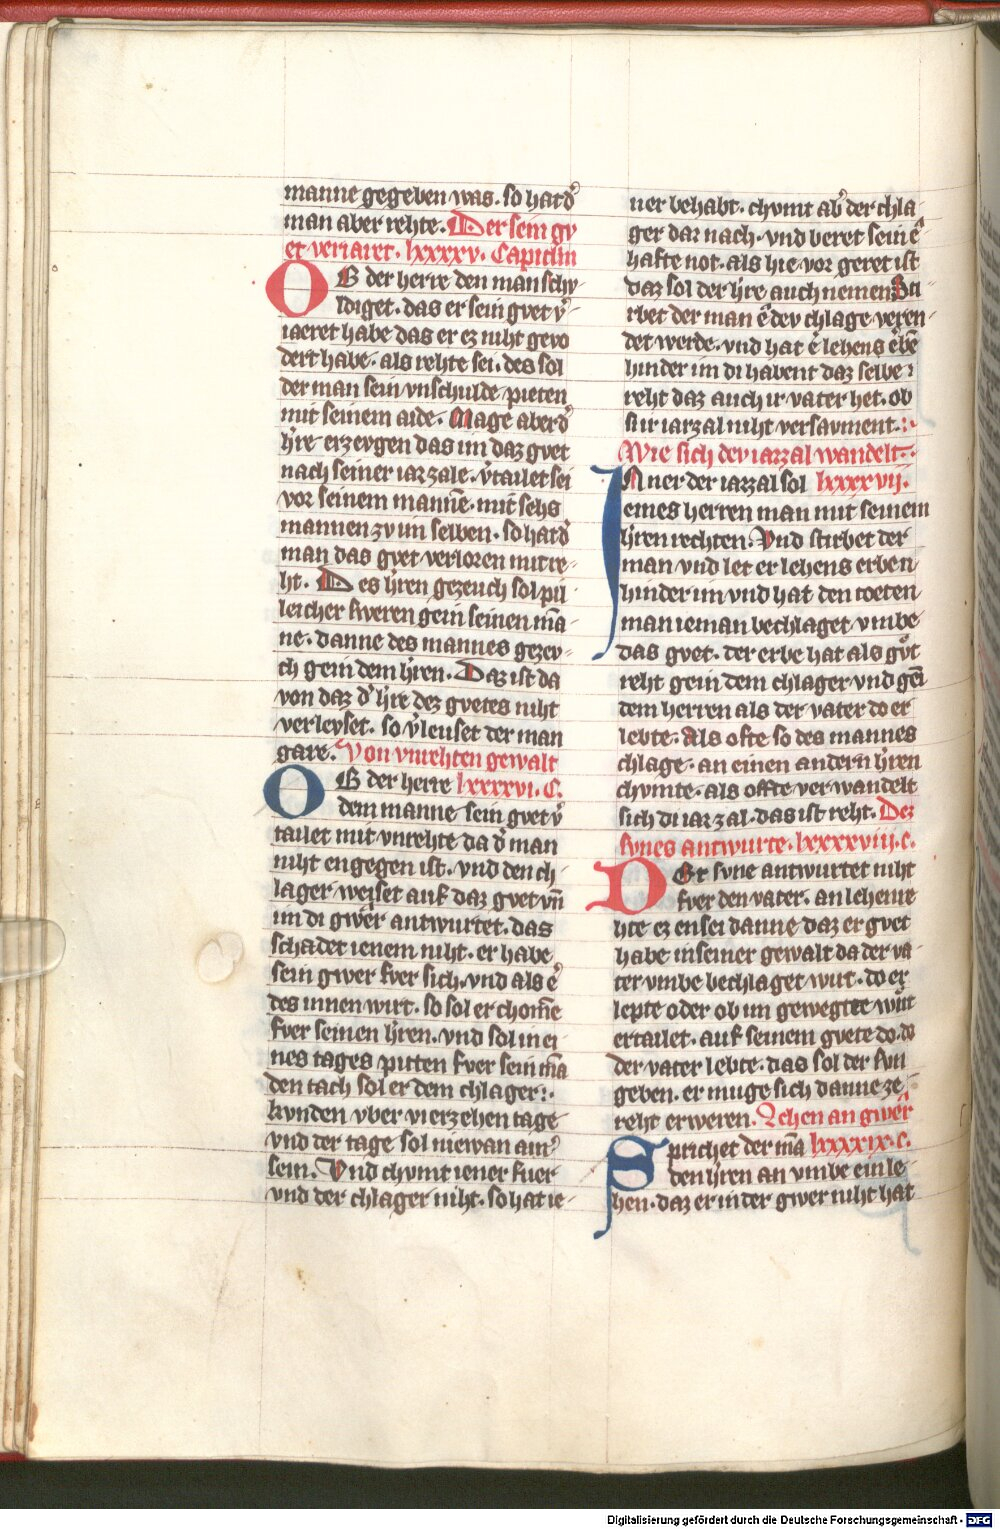 manne gegeben was. so hat dͤ
man aber rehte. Der sein gv
et veriaret. lxxxxv. Capitlm
OB der herre den man schv-
ldiget. das er sein gvet v̾-
iaeret habe das er ez niht gevo
dert habe. als rehte sei. des sol
der man sein vnschulde pieten
mit seinem aide. Mage aber d̾
h̾re erzevgen das im daz gvet
nach seiner iarzale. v̾tailet sei
vor seinem manne. mit sehs
mannen zv im selben. so hat d̾
man das gvet verlozen mit re-
ht. Des h̾ren gezeuch sol pil
leicher sweren gein seinen mā-
ne. danne des mannes gezev-
ch gein dem h̾ren. Daz ist da
von daz d̾ h̾re dez gvetes niht
verleyset. so v̾leuset der man
gare. Von vnrehten gewalt
OB der herre lxxxxvi. C.
dem manne sein gvet v̾
tailet mit vnrehte da d̾ man
niht engegen ist. vnd den ch-
lager weiset auf daz gvet vn̄
im di gwer antwurtet. das
schadet ienem niht. er habe
sein gwer fver sich. vnd als e̾
des innen wirt. so sol er chomē
fver seinen h̾ren. vnd sol in ei
nes tages pitten fver sein mā
den tach sol er dem chlager:.
kvnden vber vierzehen tage
vnd der tage sol niewan ain̾
sein. Vnd chvmt iener fuer
vnd der chlager niht. so hat ie-
ner behabt. chvmt ab̾ der chla-
ger dar nach. vnd beret sein e-
hafte not. als hie vor geret ist
daz sol der h̾re auch nemen Sti
rbet der man e dev chlage veren-
det werde. vnd hat e lehens erbē
hinder im di habent daz selbe
reht daz auch ir vater het. ob
si ir iarzal niht versavment.:
Wie sich dev iarzal wandelt.
IN ner der iarzal sol lxxxxvij.
eines herren man mit seinem
h̾ren rechten. Vnd stirbet der
man vnd let er lehens erben
hinder im vnd hat den toeten
man ieman bechlaget vmbe
das gvet. der erbe hat als gvͦt
reht gein dem chlager vnd gēi
dem herren als der vater do er
lebte. Als ofte so des mannes
chlage. an einen andern h̾ren
chvmte. als offte verwandelt
sich di iarzal. das ist reht. Dez
svnes antwurte. lxxxxviii. c.
DEr svne antwurtet niht
fver den vater. an lehenre
hte ez en sei danne daz er gvet
habe in seiner gewalt da der va-
ter vmbe bechlaget wirt. do er
lepte oder ob im gewegtte wirt
ertailet. auf seinem gvete do. do
der vater lebte. das sol der svn
geben. er muge sich danne ze
reht erweren. Lehen an gwer
Sprichet der mā lxxxxix. c.
den h̾ren an vmbe ein le-
hen. daz er in der gwer niht hat
Digitalisierung gefördert durch die Deutsche Forschungsgemeinschaft - DFG